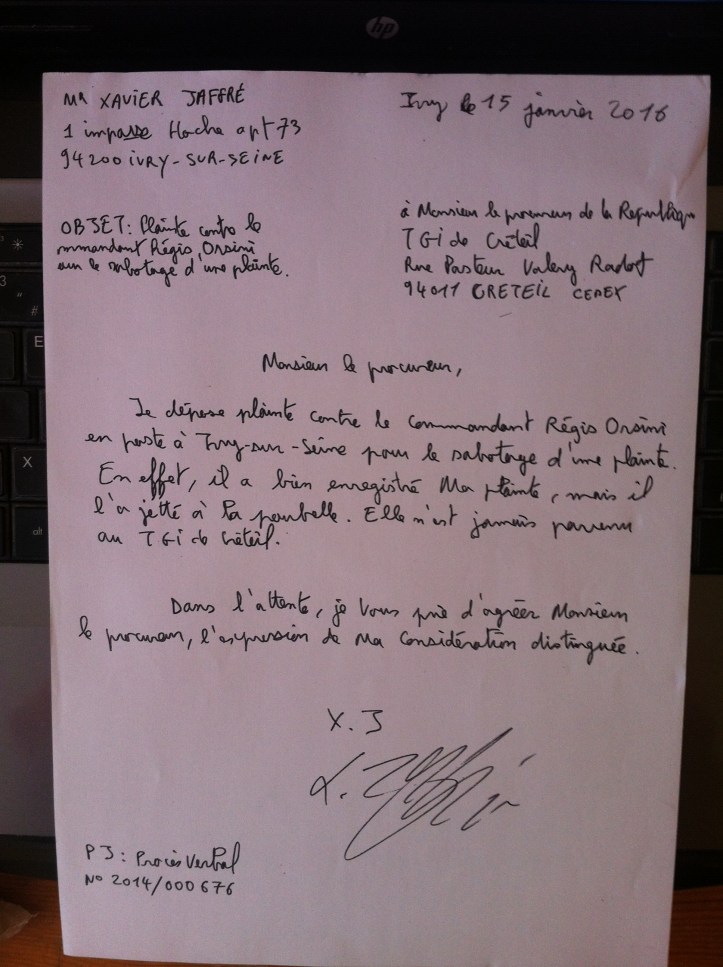 hp
Mr XAVIER JAFFRÉ
1 impasse Hoche apt 73
94200 IVRY-SUR-SEINE
Ivry le 15 janvier 2016
OBJET: Plainte contre le
mmandant Régis Orsini
sur le sabotage d'une plainte.
à Monsieur le procureur de la République
TGI de Créteil
Rue Pasteur Valery Radot
94011 CRETEIL CEDEX
Monsieur le procureur,
Je dépose plainte contre le Commandant Régis Orsini
en poste à Ivry-sur-Seine pour le sabotage d'une plainte.
En effet, il a bien enregistré Ma plainte, mais il
l'a jetté à la poubelle. Elle n'est jamais parvenu
au TGI de Créteil.
Dans l'attente, je Vous prie d'agréer Monsieur
le procureur, l'expression de Ma Considération distinguée.
X. J
PJ: Procès Verbal
No 2014/000676
3
"
#
*
E
X
alt